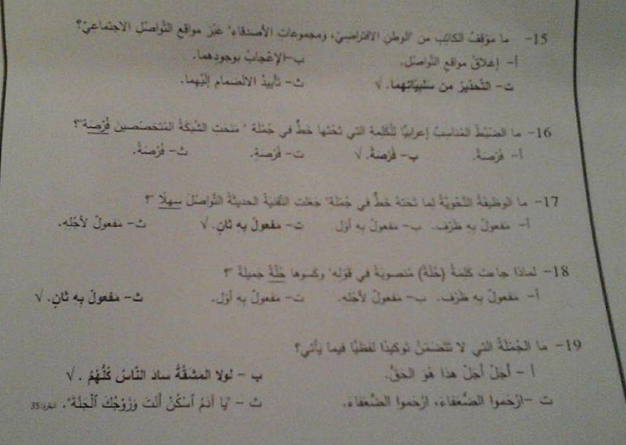 15- ما موقف الكاتب من "الوطن الافتراضيّ، ومجموعات الأصدقاء" عبْر مواقع التّواصل الاجتماعيّ؟
أ- إغلاق مواقع التّواصل. ب- الإعجاب بوجودهما.
ت- التّحذير من سلبيّاتهما. √ ث- تأييد الانضمام إليهما.
16- ما الضّبط المُناسب إعرابيًّا للكلمة التي تحتها خطّ في جُملة " منحت الشّبكة المُتخصّصين فرْصة"؟
أ- فرْصة. ب- فرْصة. √ ت- فرْصة. ث- فرْصة.
17- ما الوظيفة النّحويّة لما تحته خطٌّ في جُملة" جعلت التّقنية الحديثة التّواصل سهلًا "؟
أ- مفعول به ظرْف. ب- مفعول به أوّل ت- مفعول به ثانٍ. √ ث- مفعول لأجْله.
18- لماذا جاءت كلمة (حُلّة) منصوبة في قوْله" وكسوها حُلّة جميلة "؟
أ- مفعول به ظرْف. ب- مفعول لأجْله. ت- مفعول به أوّل. ث- مفعول به ثانٍ. √
19- ما الجُملة التي لا تتضمّن توكيدًا لفظيًّا فيما يأتي؟
أ - أجلْ أجلْ هذا هُو الحقّ. ب - لولا المشقّةُ سادَ النّاسُ كُلُّهُمُ . √
ت -ارْحموا الضّعفاء، ارْحموا الضّعفاء. ث - "يا آدَمُ اسْكُنْ أَنْتَ وَزَوْجُكَ الْجَنَّةَ". البقرة:35